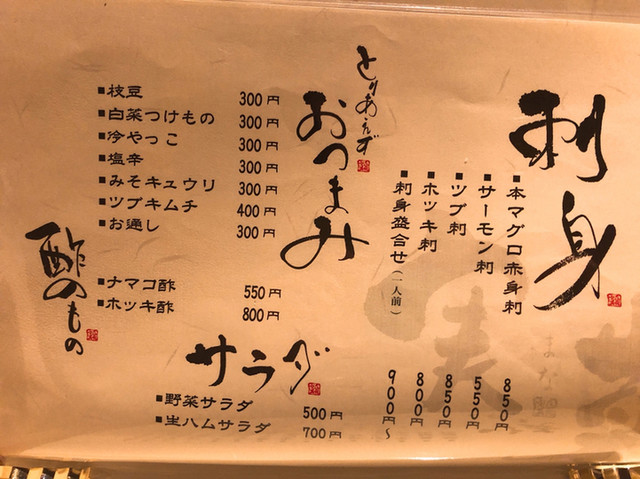 刺身
本マグロ赤身刺 850円
サーモン刺 550円
ツブ刺 850円
ホッキ刺 800円
刺身盛合せ(一人前) 900円〜
とりあえず
おつまみ
枝豆 300円
白菜つけもの 300円
冷やっこ 300円
塩辛 300円
みそキュウリ 300円
ツブキムチ 400円
お通し 300円
酢のもの
ナマコ酢 550円
ホッキ酢 800円
サラダ
野菜サラダ 500円
生ハムサラダ 700円